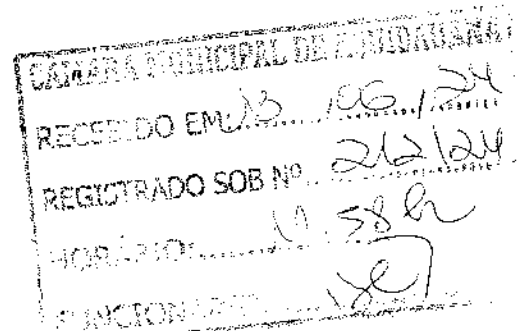 CÂMARA MUNICIPAL DE AQUIDAUANA
RECEBIDO EM: 13 / 06 / 24
REGISTRADO SOB Nº 212/24
HORÁRIO: 58 h
FUNCIONÁRIO